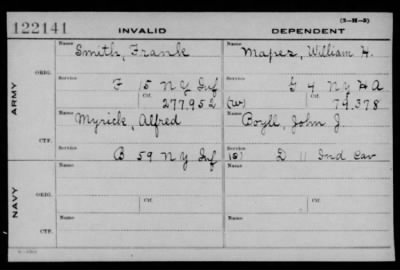 (3-H-5)
122141 INVALID DEPENDENT
Name Smith, Frank Name Mapes, William H.
ORIG.
Service F 15 N Y Inf Service G 4 N Y H A
Ctf. 277.952 (W) Ctf. 79.378
ARMY
Name Myrick, Alfred Name Boyll, John J.
CTF.
Service B 59 N Y Inf Service D 11 Ind Cav
Name Name
ORIG.
Service Ctf. Service Ctf.
NAVY
Name Name
CTF.
Service Service